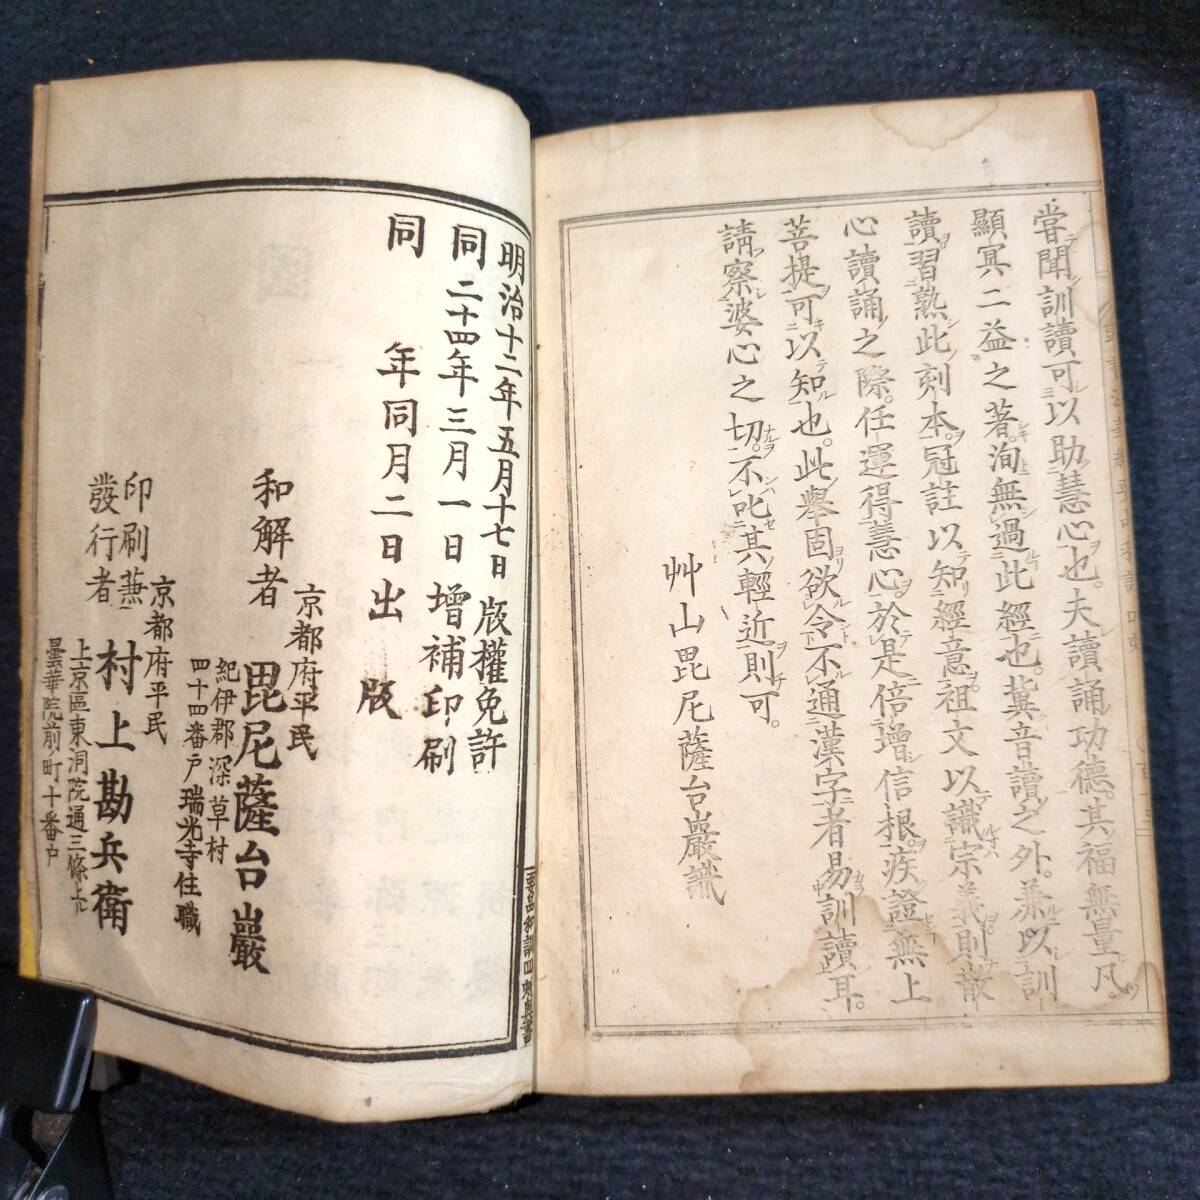 甞聞訓讀可以助慧心也。夫讀誦功德。其福無量。凡
顯冥二益之著。洵無過此經也。冀音讀之外。兼以訓
讀習熟此刻本。冠註以知經意。祖文以識宗義。則散
心讀誦之際。任運得慧心。於是倍增信根。疾證無上
菩提可以知也。此舉固欲令不通漢字者易訓讀耳。
請察婆心之切。不叱其輕近則可。
艸山毘尼薩台巖識
明治十二年五月十七日版權免許
同二十四年三月一日增補印刷
同年同月二日出版
京都府平民
和解者 毘尼薩台巖
紀伊郡深草村
四十四番戸瑞光寺住職
京都府平民
印刷兼
發行者 村上勘兵衛
上京區東洞院通三條上ル
曇華院前ノ町十番戸